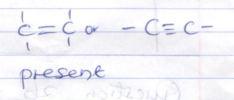 C=C or -C≡C-
present